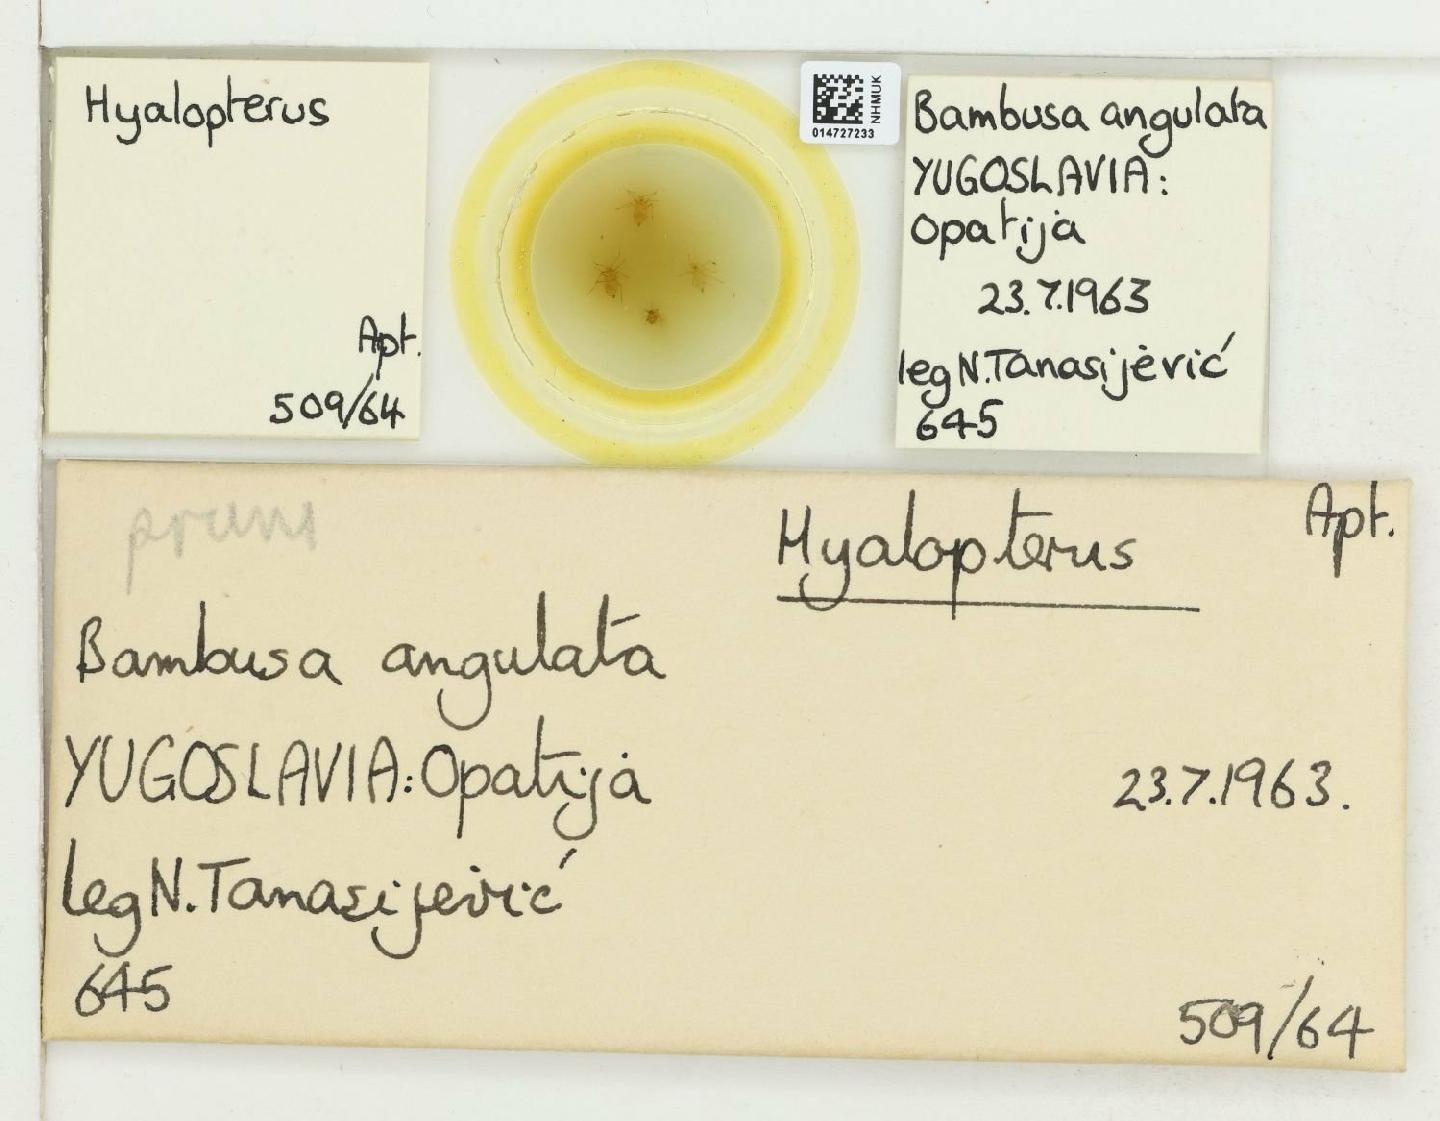 Hyalopterus
Apt.
509/64
NHMUK
014727233
Bambusa angulata
YUGOSLAVIA:
Opatija
23.7.1963
leg N. Tanasijević
645
pruni
Hyalopterus
Apt.
Bambusa angulata
YUGOSLAVIA: Opatija
23.7.1963.
leg N. Tanasijević
645
509/64